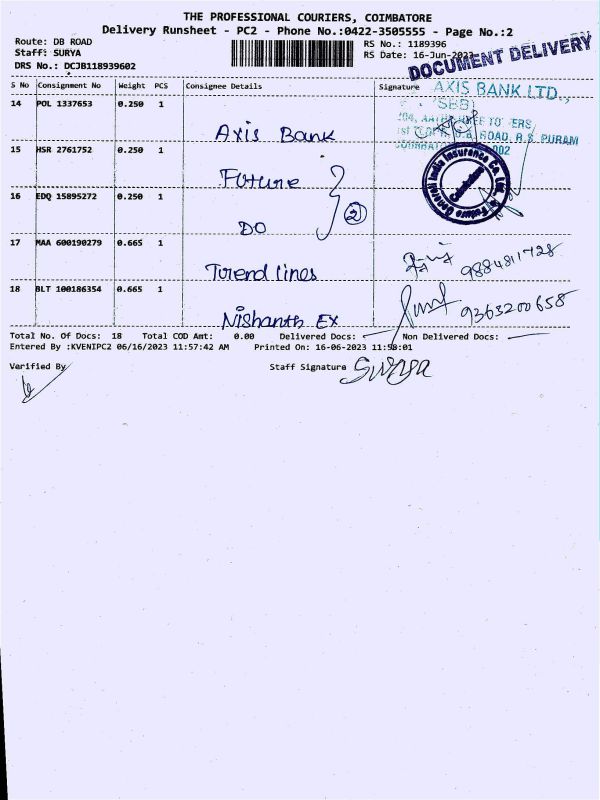 THE PROFESSIONAL COURIERS, COIMBATORE
Delivery Runsheet - PC2 - Phone No.:0422-3505555 - Page No.:2
Route: DB ROAD
Staff: SURYA
DRS No.: DCJB118939602
RS No.: 1189396
RS Date: 16-Jun-2023
DOCUMENT DELIVERY
S No Consignment No Weight PCS Consignee Details Signature
AXIS BANK LTD.,
14 POL 1337653 0.250 1 Axis Bank
ROAD, R.S. PURAM
15 HSR 2761752 0.250 1 Future
Future Generali India Insurance Co. Ltd.
Coimbatore
16 EDQ 15895272 0.250 1 DO
2
17 MAA 600190279 0.665 1 Trendlines 9884811728
18 BLT 100186354 0.665 1 Nishanth Ex 9363200658
Total No. Of Docs: 18 Total COD Amt: 0.00 Delivered Docs: Non Delivered Docs:
Entered By :KVENIPC2 06/16/2023 11:57:42 AM Printed On: 16-06-2023 11:58:01
Verified By Staff Signature Surya